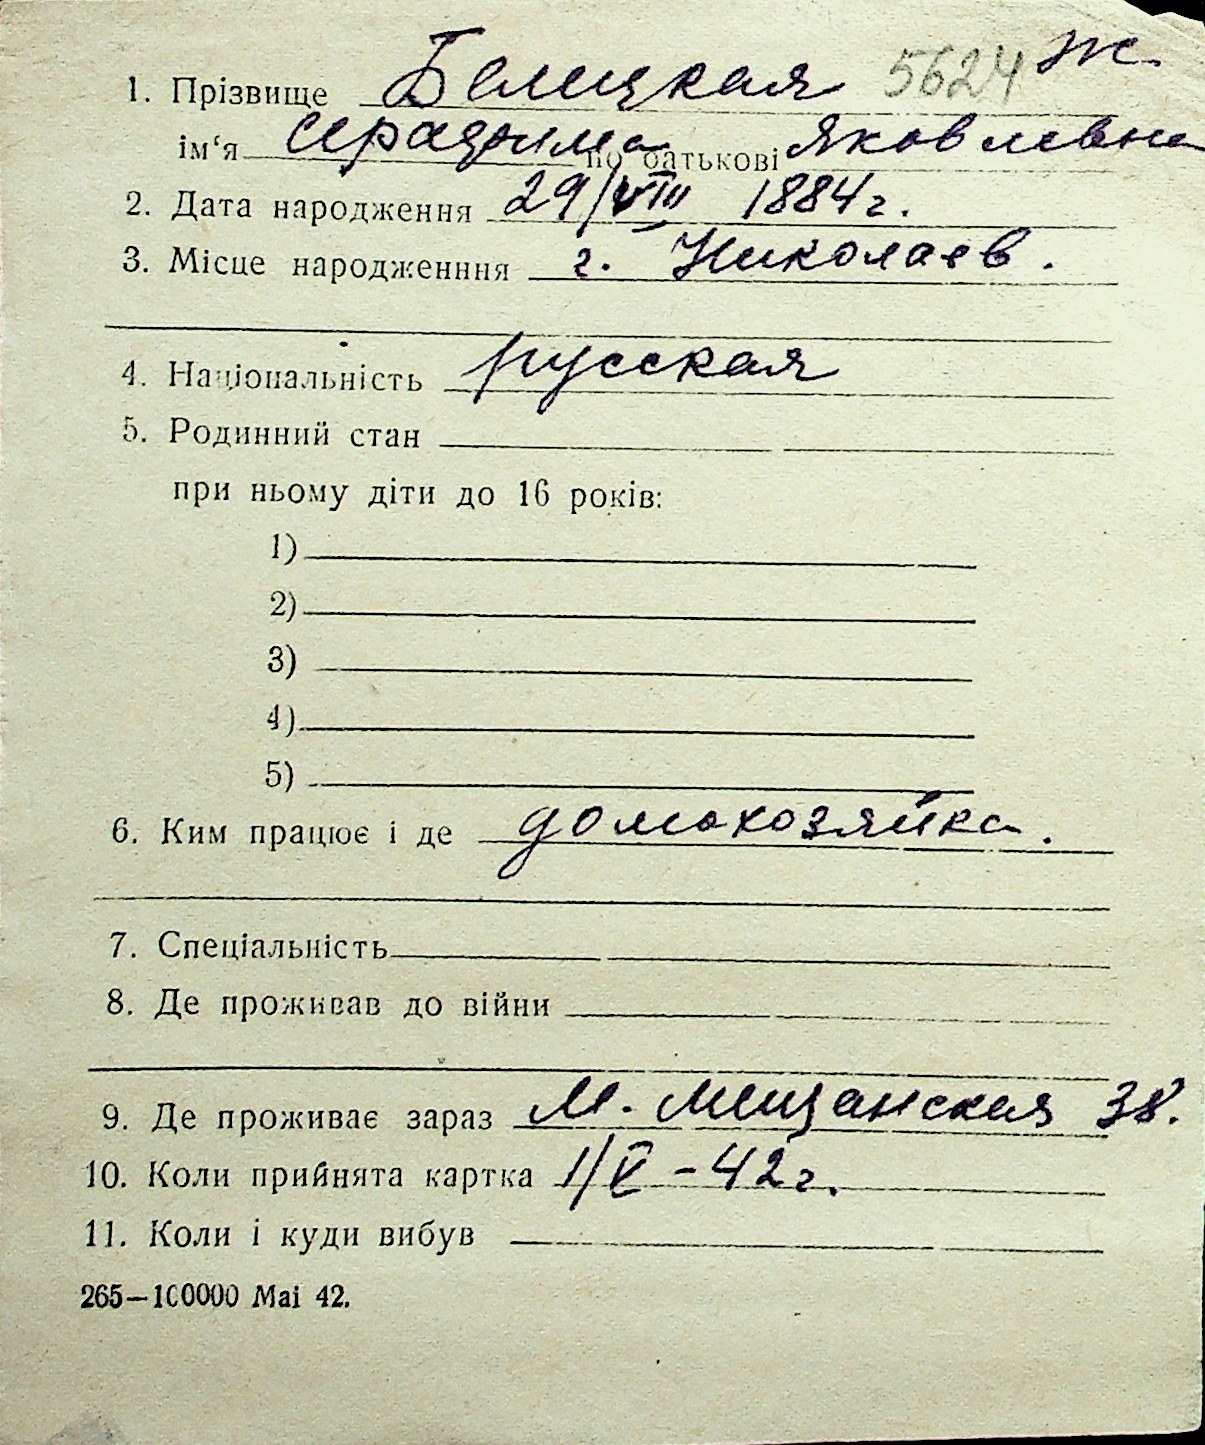 1. Прізвище Белицкая 5624 ж.
ім‘я Серафима по батькові Яковлевна
2. Дата народження 29/VIII 1884 г.
3. Місце народженння г. Николаев.
4. Національність русская
5. Родинний стан
при ньому діти до 16 років:
1)
2)
3)
4)
5)
6. Ким працює і де домохозяйка.
7. Спеціальність
8. Де проживав до війни
9. Де проживає зараз М. Мещанская 38.
10. Коли прийнята картка 1/V – 42 г.
11. Коли і куди вибув
265—100000 Маі 42.